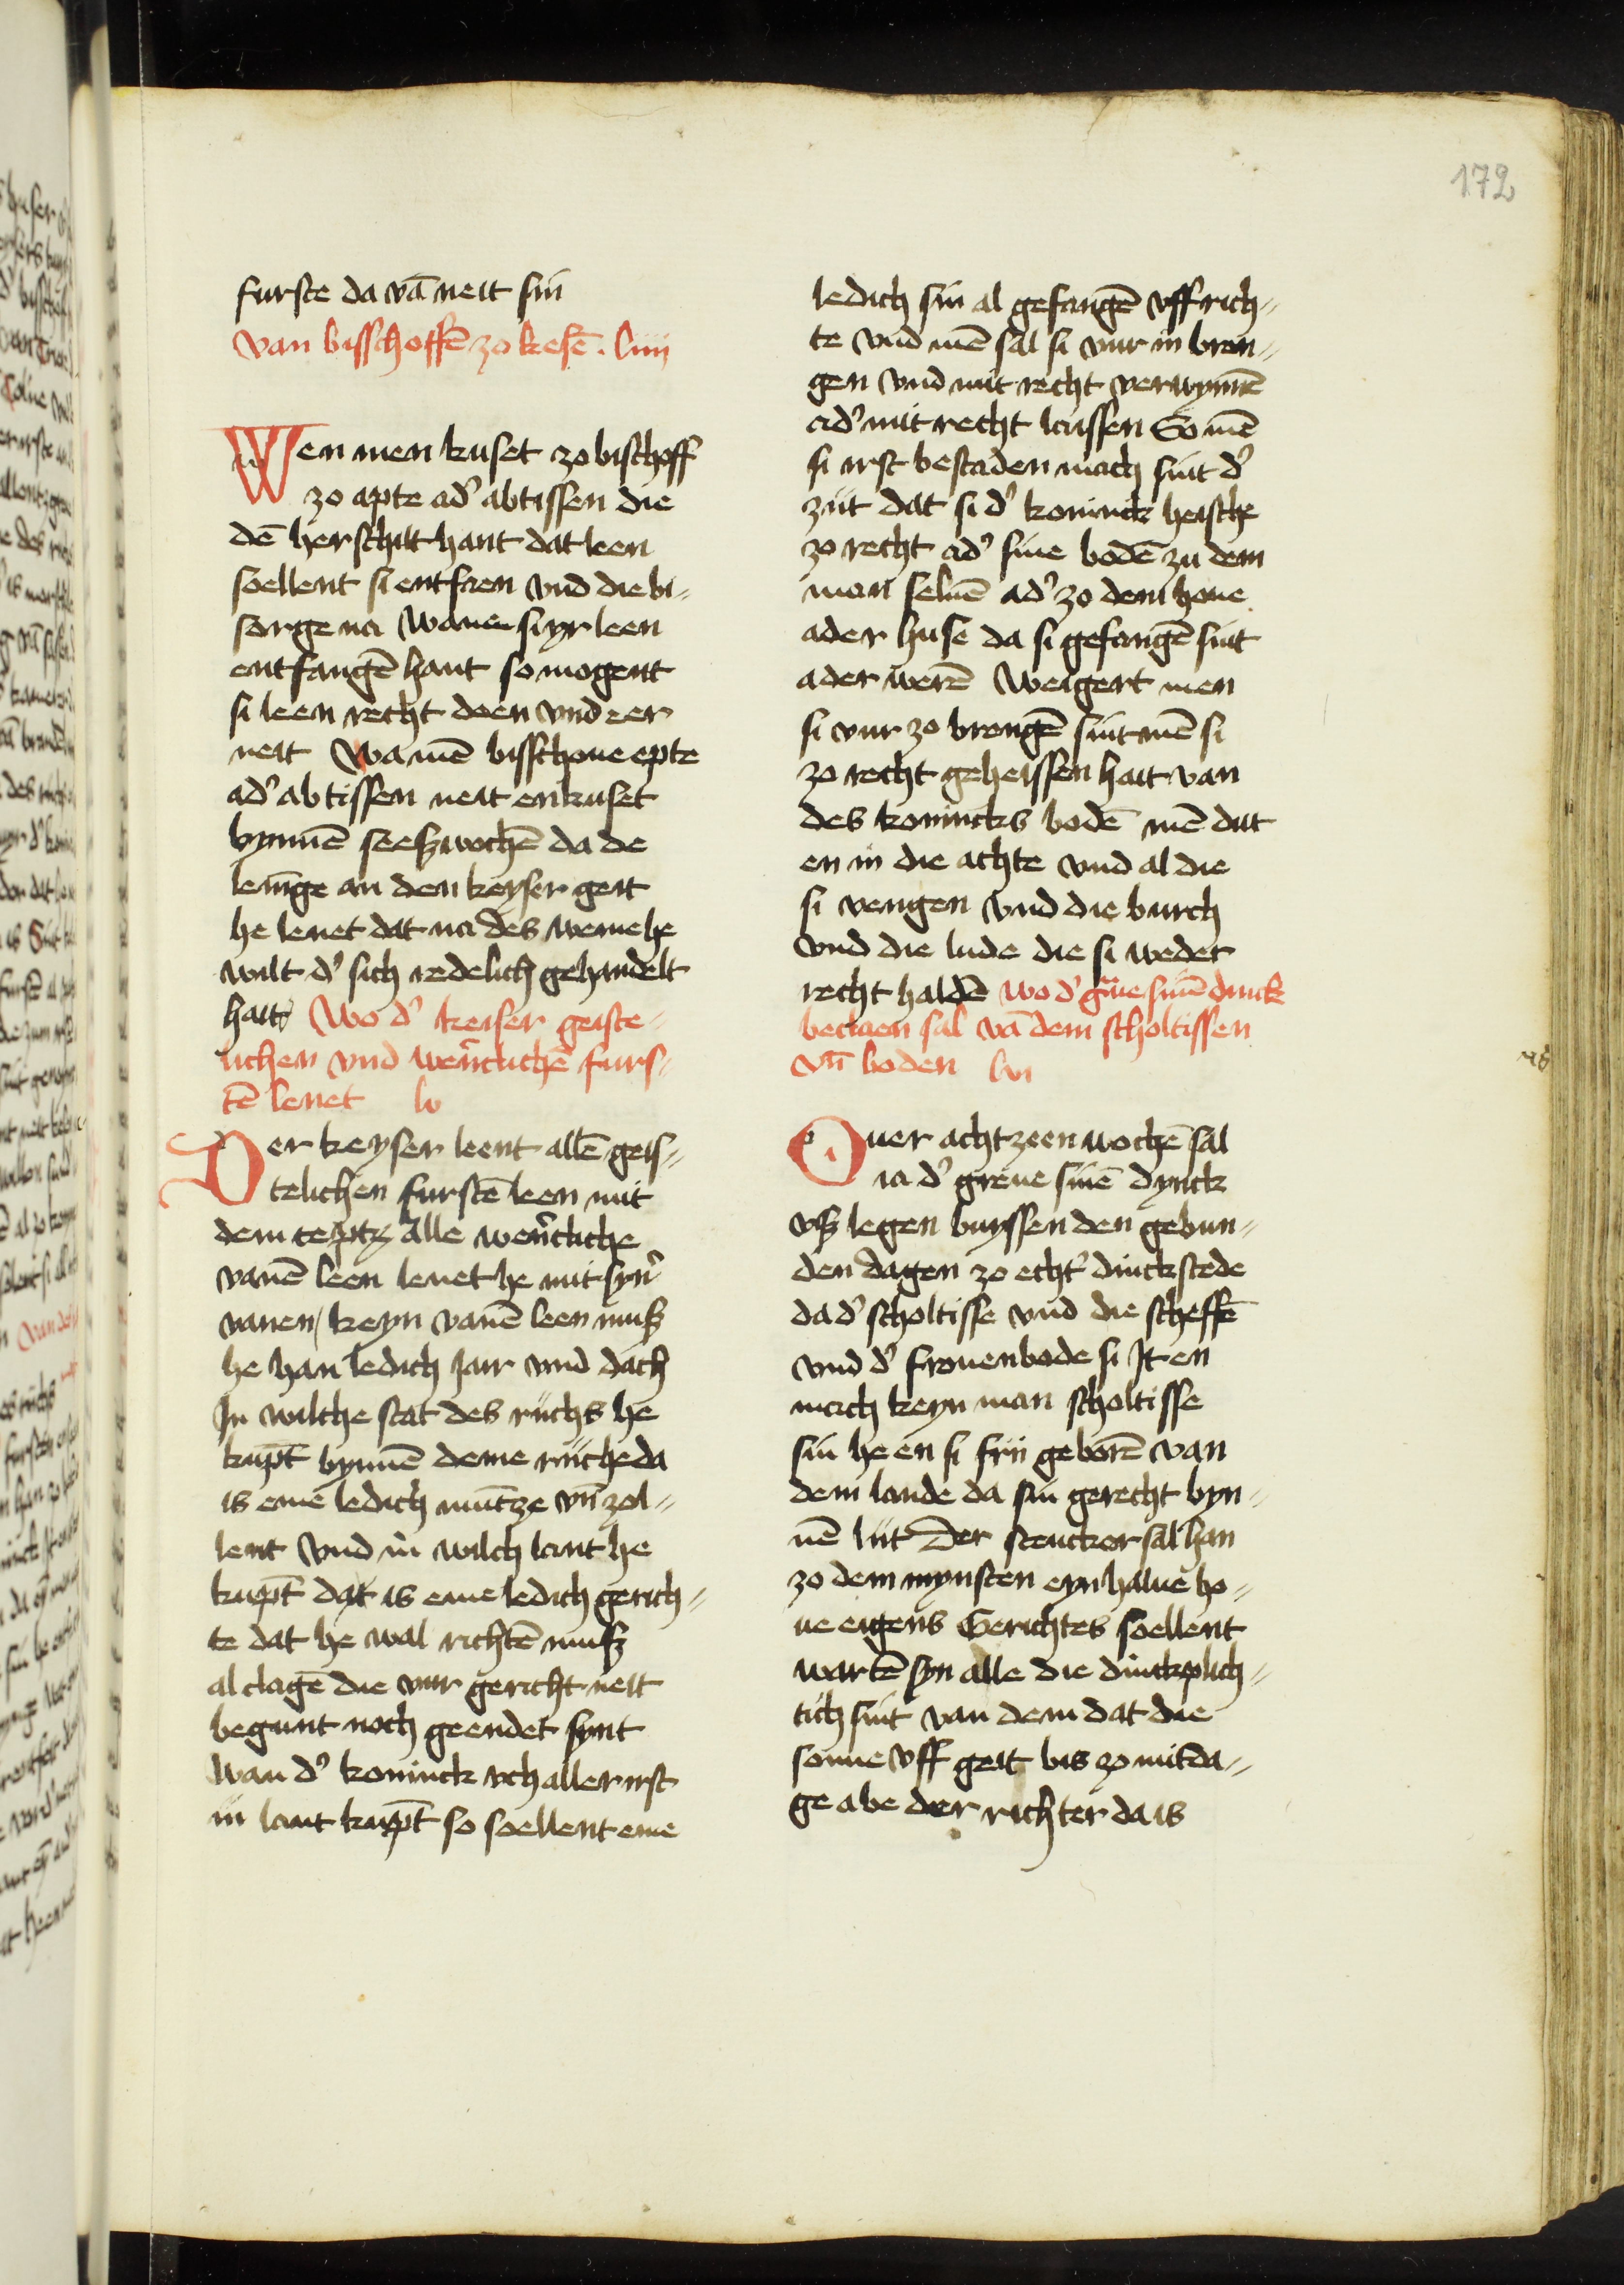 172
furste da vā neit sin
Van bisschoffē zo kesē . liiij
Wen men kuset zo bischoff
zo apte ad' abtissen die
dē herschilt hant dat leen
soellent si entfaen vnd die bi-
sorge na Wanne si yr leen
entfangē hant so mogent
si leen recht doen vnd eer
neit Wa mē bisschoue epte
ad' abtissen neit enkuset
bynnē seeßwochē da de
leninge an den keyser geit
he lenet dat na des weme he
wilt d' sich redelich gehandelt
hait Wo d' keiser geiste-
lichen vnd werēctlichē furs-
tē lenet lv
Der keyser leent allē geis-
telichen furstē leen mit
dem ceptz Alle werētliche
vanē leen lenet he mit syn'
vanen / keyn vanē leen muß
he han ledich Jair vnd dach
In wilche stat des rijchs he
kupt bynnē deme rijche da
is eme ledich muntze vn̄ zol-
lent Vnd in wilch lant he
kupt dat is eme ledich gerich-
te dat he wal richtē muß
al clagē die vur gericht neit
begunt noch geendet synt
Wan d' konick ich aller irst
in lant kupt so soellent eme
ledich sin al gefangē vff rich-
te vnd mē sal si vur in bren-
gen vnd mit recht verwynnē
ad' mit recht laissen So mē
si irst bestaden mach sint d'
zijt dat si d' koninck heische
zo recht ad' sine bodē zu dem
man seluē ad' zo dem houe
ader huse da si gefangē sint
ader werē Weigert men
si vur zo brengē sint mē si
zo recht geheissen hait van
des konincks bodē mē dut
en in die achte vnd al die
si vengen vnd die burch
vnd die lude die si weder
recht haldē Wo d' g̃ue sinē dinck
beclaen sal vā dem scholtissen
vn̄ boden lvi
Ouer achtzeen wochē sal
ia d' greue sinē dynck
vß legen buyssen den gebun-
den dagen zo echt' dinckstede
da d' scholtisse vnd die scheffē
vnd d' fronenbode si It en
mach keyn man scholtisse
sin he en si frij geborē van
dem lande da sin gerecht byn-
nē lijt Der stencker sal han
zo dem mynsten eyn halue ho-
ue eigens Gerichtes soellent
wartē syn alle die dinckplich-
tich sint van dem dat die
sonne vff geit bis zo mitda-
ge abe der richter da is